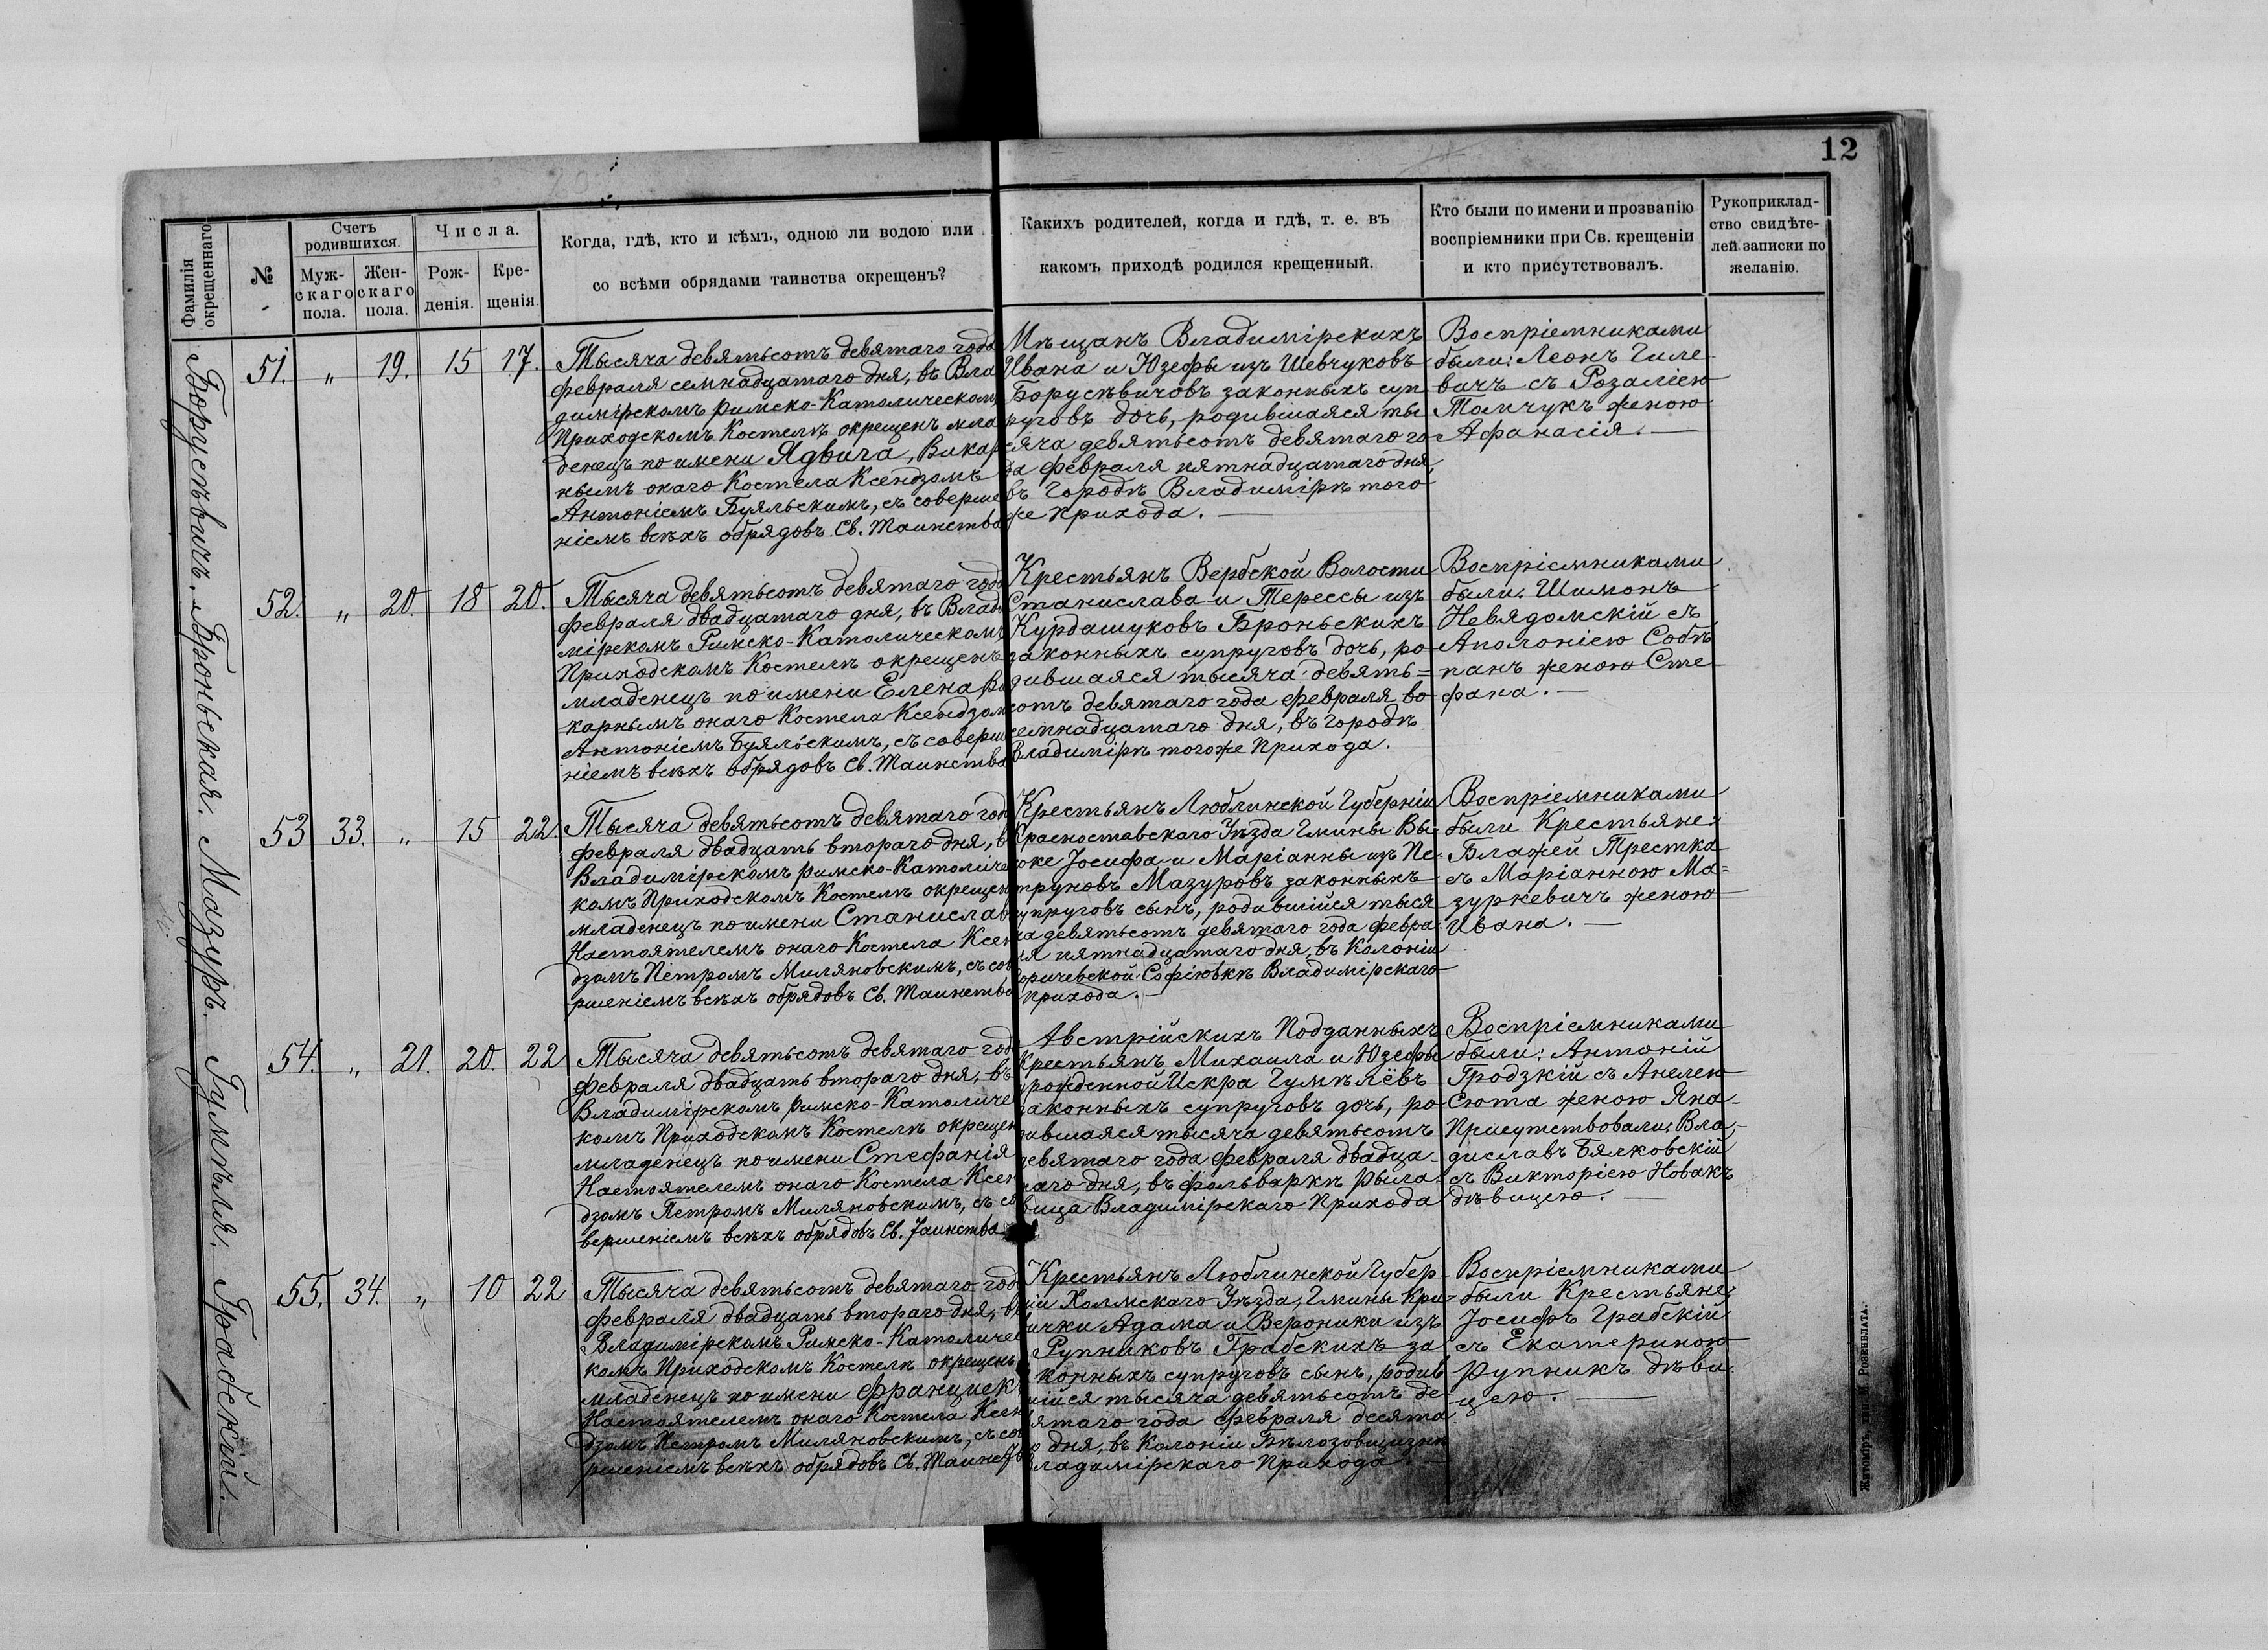 12
Фамилія окрещеннаго
№
Счетъ родившихся.
Муж-
скаго
пола.
Жен-
скаго
пола.
Числа.
Рож-
денія.
Кре-
щенія.
Когда, гдѣ, кто и кѣмъ, одною ли водою или
со всѣми обрядами таинства окрещенъ?
Какихъ родителей, когда и гдѣ, т. е. въ
какомъ приходѣ родился крещенный.
Кто были по имени и прозванію
воспріемники при Св. крещеніи
и кто присутствовалъ.
Рукоприклад-
ство свидѣте-
лей записки по
желанію.
Борусѣвичъ. Броньская. Мазуръ. Гумѣля. Грабскій.
51. „ 19. 15 17.
Тысяча девятьсотъ девятаго года
февраля семнадцатаго дня, въ Вла
димірскомъ римско-Католическомъ
Приходскомъ Костелѣ окрещенъ мла
денецъ по имени Ядвига, Викар
нымъ онаго Костела Ксендзомъ
Антоніемъ Буяльскимъ, съ соверше
ніемъ всѣхъ обрядовъ Св. Таинства
Мѣщанъ Владимірскихъ
Ивана и Юзефы изъ Шевчуковъ
Борусѣвичовъ законныхъ суп
руговъ дочь, родившаяся ты
сяча девятьсотъ девятаго го
да февраля пятнадцатаго дня,
въ Городѣ Владимірѣ того
же прихода.
Воспріемниками
были: Леонъ Гиле
вичъ съ Розаліею
Томчукъ женою
Афанасія.
52. „ 20. 18 20.
Тысяча девятьсотъ девятаго года
февраля двадцатаго дня, въ Влади
мірскомъ Римско-Католическомъ
Приходскомъ Костелѣ окрещенъ
младенецъ по имени Елена Ви
карнымъ онаго Костела Ксендзом
Антоніемъ Буяльскимъ, съ соверше
ніемъ всѣхъ обрядовъ Св. Таинства
Крестьянъ Вербской Волости
Станислава и Терессы изъ
Курдашуковъ Броньскихъ
законныхъ супруговъ дочь, ро
дившаяся тысяча девять=
сотъ девятаго года февраля во
семнадцатаго дня, въ городѣ
Владимірѣ того же Прихода.
Воспріемниками
были: Шимонъ
Невядомскій съ
Аполоніею Собѣ
панъ женою Сте
фана.
53 33. „ 15 22.
Тысяча девятьсотъ девятаго года
февраля двадцать втораго дня, въ
Владимірскомъ римско-Католичес
комъ Приходскомъ Костелѣ окрещен
младенецъ по имени Станислав
Настоятелемъ онаго Костела Ксен
дзомъ Петромъ Миляновскимъ, съ сов
ршеніемъ всѣхъ обрядовъ Св. Таинства
Крестьянъ Люблинской Губерніи
Красноставскаго Уѣзда Гмины Вы
соке Іосифа и Маріанны изъ Пе
труковъ Мазуровъ законныхъ
супруговъ сынъ, родившійся тыся
ча девятьсотъ девятаго года февра
ля пятнадцатаго дня, въ Колоніи
Софіювкѣ Владимірскаго
прихода.
Воспріемниками
были Крестьяне:
Блажей Трестка
съ Маріанною Ма=
зуркевичъ женою
Ивана.
54. „ 21. 20. 22
Тысяча девятьсотъ девятаго год
февраля двадцать втораго дня, въ
Владимірскомъ римско-Католиче
комъ Приходскомъ Костелѣ окрещен
младенецъ по имени Стефанія
Настоятелемъ онаго Костела Ксен
дзомъ Петромъ Миляновскимъ, съ со
вершеніемъ всѣхъ обрядовъ Св. Таинства
Австрійскихъ Подданныхъ
Крестьянъ Михаила и Юзефы
урожденной Искра Гумѣлёвъ
законныхъ супруговъ дочь, ро
дившаяся тысяча девятьсотъ
девятаго года февраля двадца
таго дня, въ фольваркѣ Рыла
вица Владимірскаго Прихода
Воспріемниками
были: Антоній
Гродзкій съ Анелею
Сюта женою Яна
Присутствовали: Вла
диславъ Бялковскій
съ Викторіею Новакъ
дѣвицею.
55. 34. „ 10 22
Тысяча девятьсотъ девятаго год
февраля двадцать втораго дня, въ
Владимірскомъ Римско-Католичес
комъ Приходскомъ Костелѣ окрещенъ
младенецъ по имени Францишек
Настоятелемъ онаго Костела Ксен
дзомъ Петромъ Миляновскимъ, съ сов
ршеніемъ всѣхъ обрядовъ Св. Таинства
Крестьянъ Люблинской Губер
ніи Холмскаго Уѣзда, Гмины Кри
вички Адама и Вероники изъ
Рупниковъ Грабскихъ за
конныхъ супруговъ сынъ, родив
шійся тысяча девятьсотъ де
вятаго года февраля десята
го дня, въ Колоніи Бѣлозовщизнѣ
Владимірскаго Прихода.
Воспріемниками
были Крестьяне:
Іосифъ Грабскій
съ Екатериною
Рупникъ дѣви
цею.
Житоміръ, Розенблата.